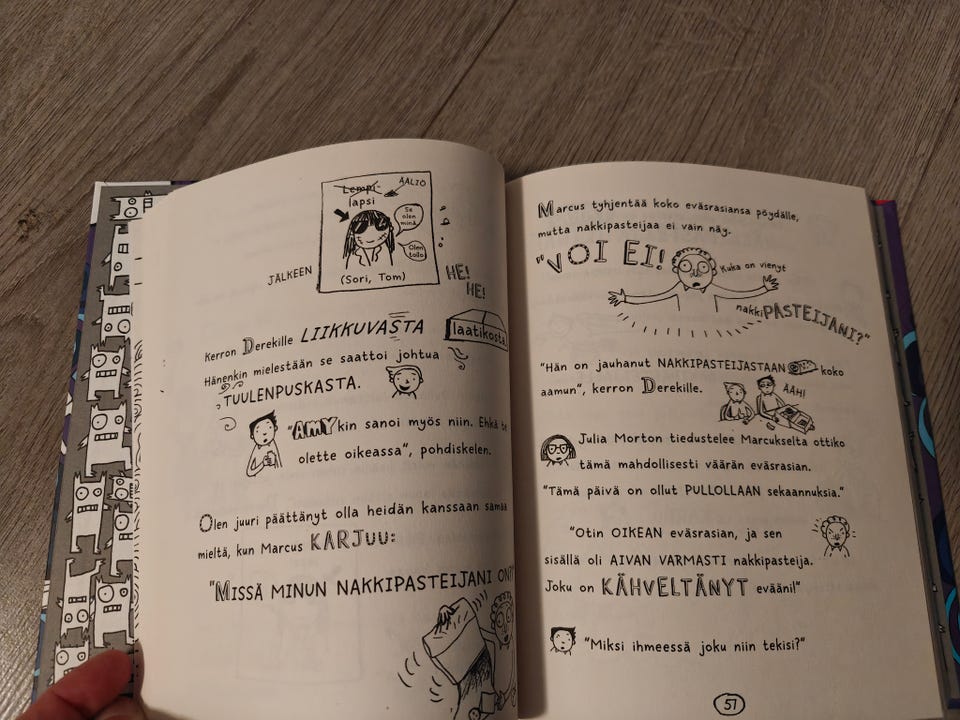 Lempi-
AALTO
lapsi
Se olen minä
Olen tollo
(Sori, Tom)
JÄLKEEN
HE!
HE!
Kerron Derekille LIIKKUVASTA laatikosta.
Hänenkin mielestään se saattoi johtua
TUULENPUSKASTA.
"AMYkin sanoi myös niin. Ehkä te
olette oikeassa", pohdiskelen.
Olen juuri päättänyt olla heidän kanssaan samaa
mieltä, kun Marcus KARJUU:
"MISSÄ MINUN NAKKIPASTEIJANI ON?"
Marcus tyhjentää koko eväsrasiansa pöydälle,
mutta nakkipasteijaa ei vain näy.
"VOI EI!
Kuka on vienyt
nakkiPASTEIJANI?"
"Hän on jauhanut NAKKIPASTEIJASTAAN koko
aamun", kerron Derekille.
ÄÄH!
Julia Morton tiedustelee Marcukselta ottiko
tämä mahdollisesti väärän eväsrasian.
"Tämä päivä on ollut PULLOLLAAN sekaannuksia."
"Otin OIKEAN eväsrasian, ja sen
sisällä oli AIVAN VARMASTI nakkipasteija.
Joku on KÄHVELTÄNYT evääni!"
"Miksi ihmeessä joku niin tekisi?"
57